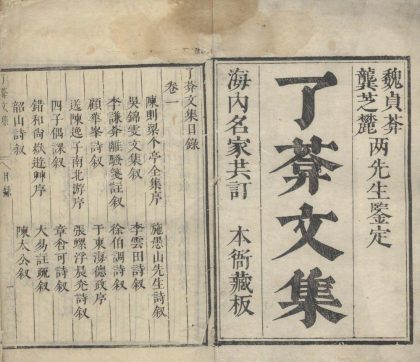 魏貞菴
龔芝麓
两先生鑒定
了葊文集
海內名家共訂 本衙藏板
了葊文集目錄
卷一
梁个亭全集序 施愚山先生詩叙
吳錦雯文集叙 李雲田詩叙
李謙菴離騷箋註叙 徐伯調詩叙
顧華峯詩叙 于東海德政序
送陳逸子南北游序 張螺浮晨光詩叙
四子偶課叙 章倉可詩叙
錯和尚嶽遊艸序 大易註疏叙
韶山詩叙 陳太公叙
了葊文集 目錄